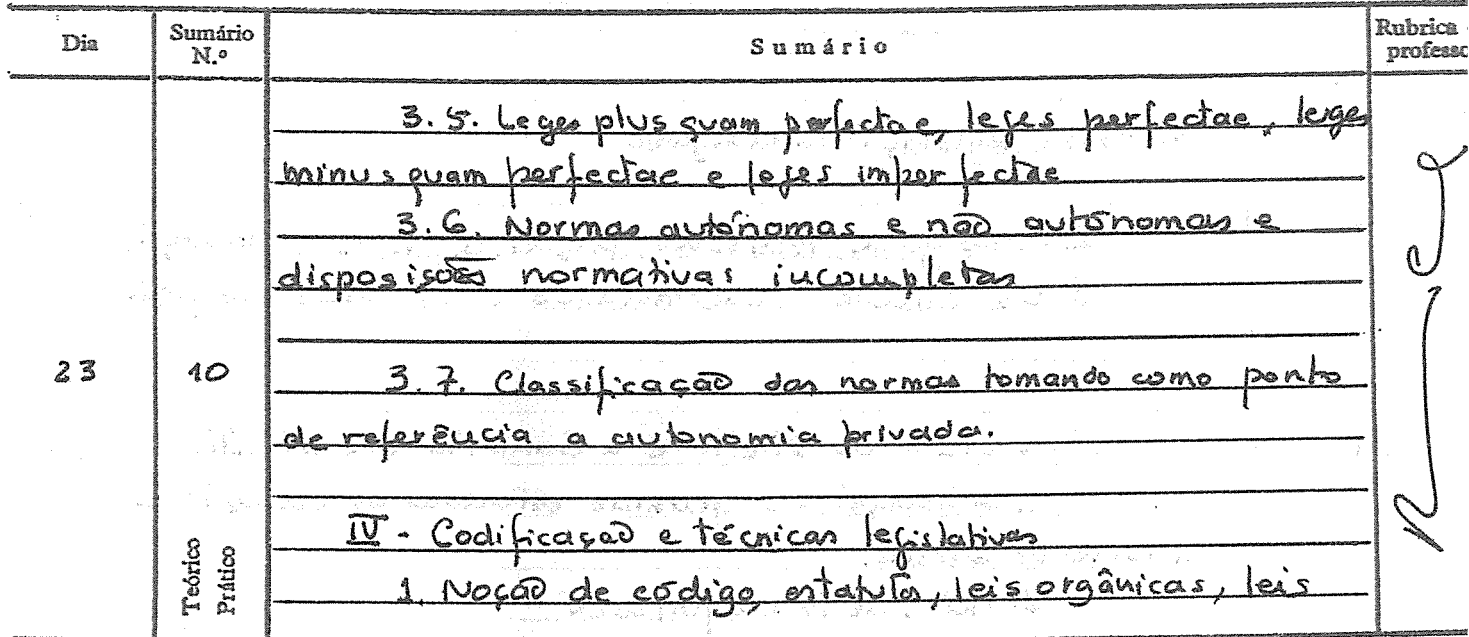 Dia
Sumário N.º
Sumário
Rubrica
professo
3.5. Leges plus quam perfectae, leges perfectae, leges
minus quam perfectae e leges imperfectae
3.6. Normas autónomas e não autónomas e
disposisões normativas incompletas
23
10
3.7. Classificação das normas tomando como ponto
de referência a autonomia privada.
IV - Codificação e técnicas legislativas
Teórico
Prático
1. Noção de código, estatuto, leis orgânicas, leis